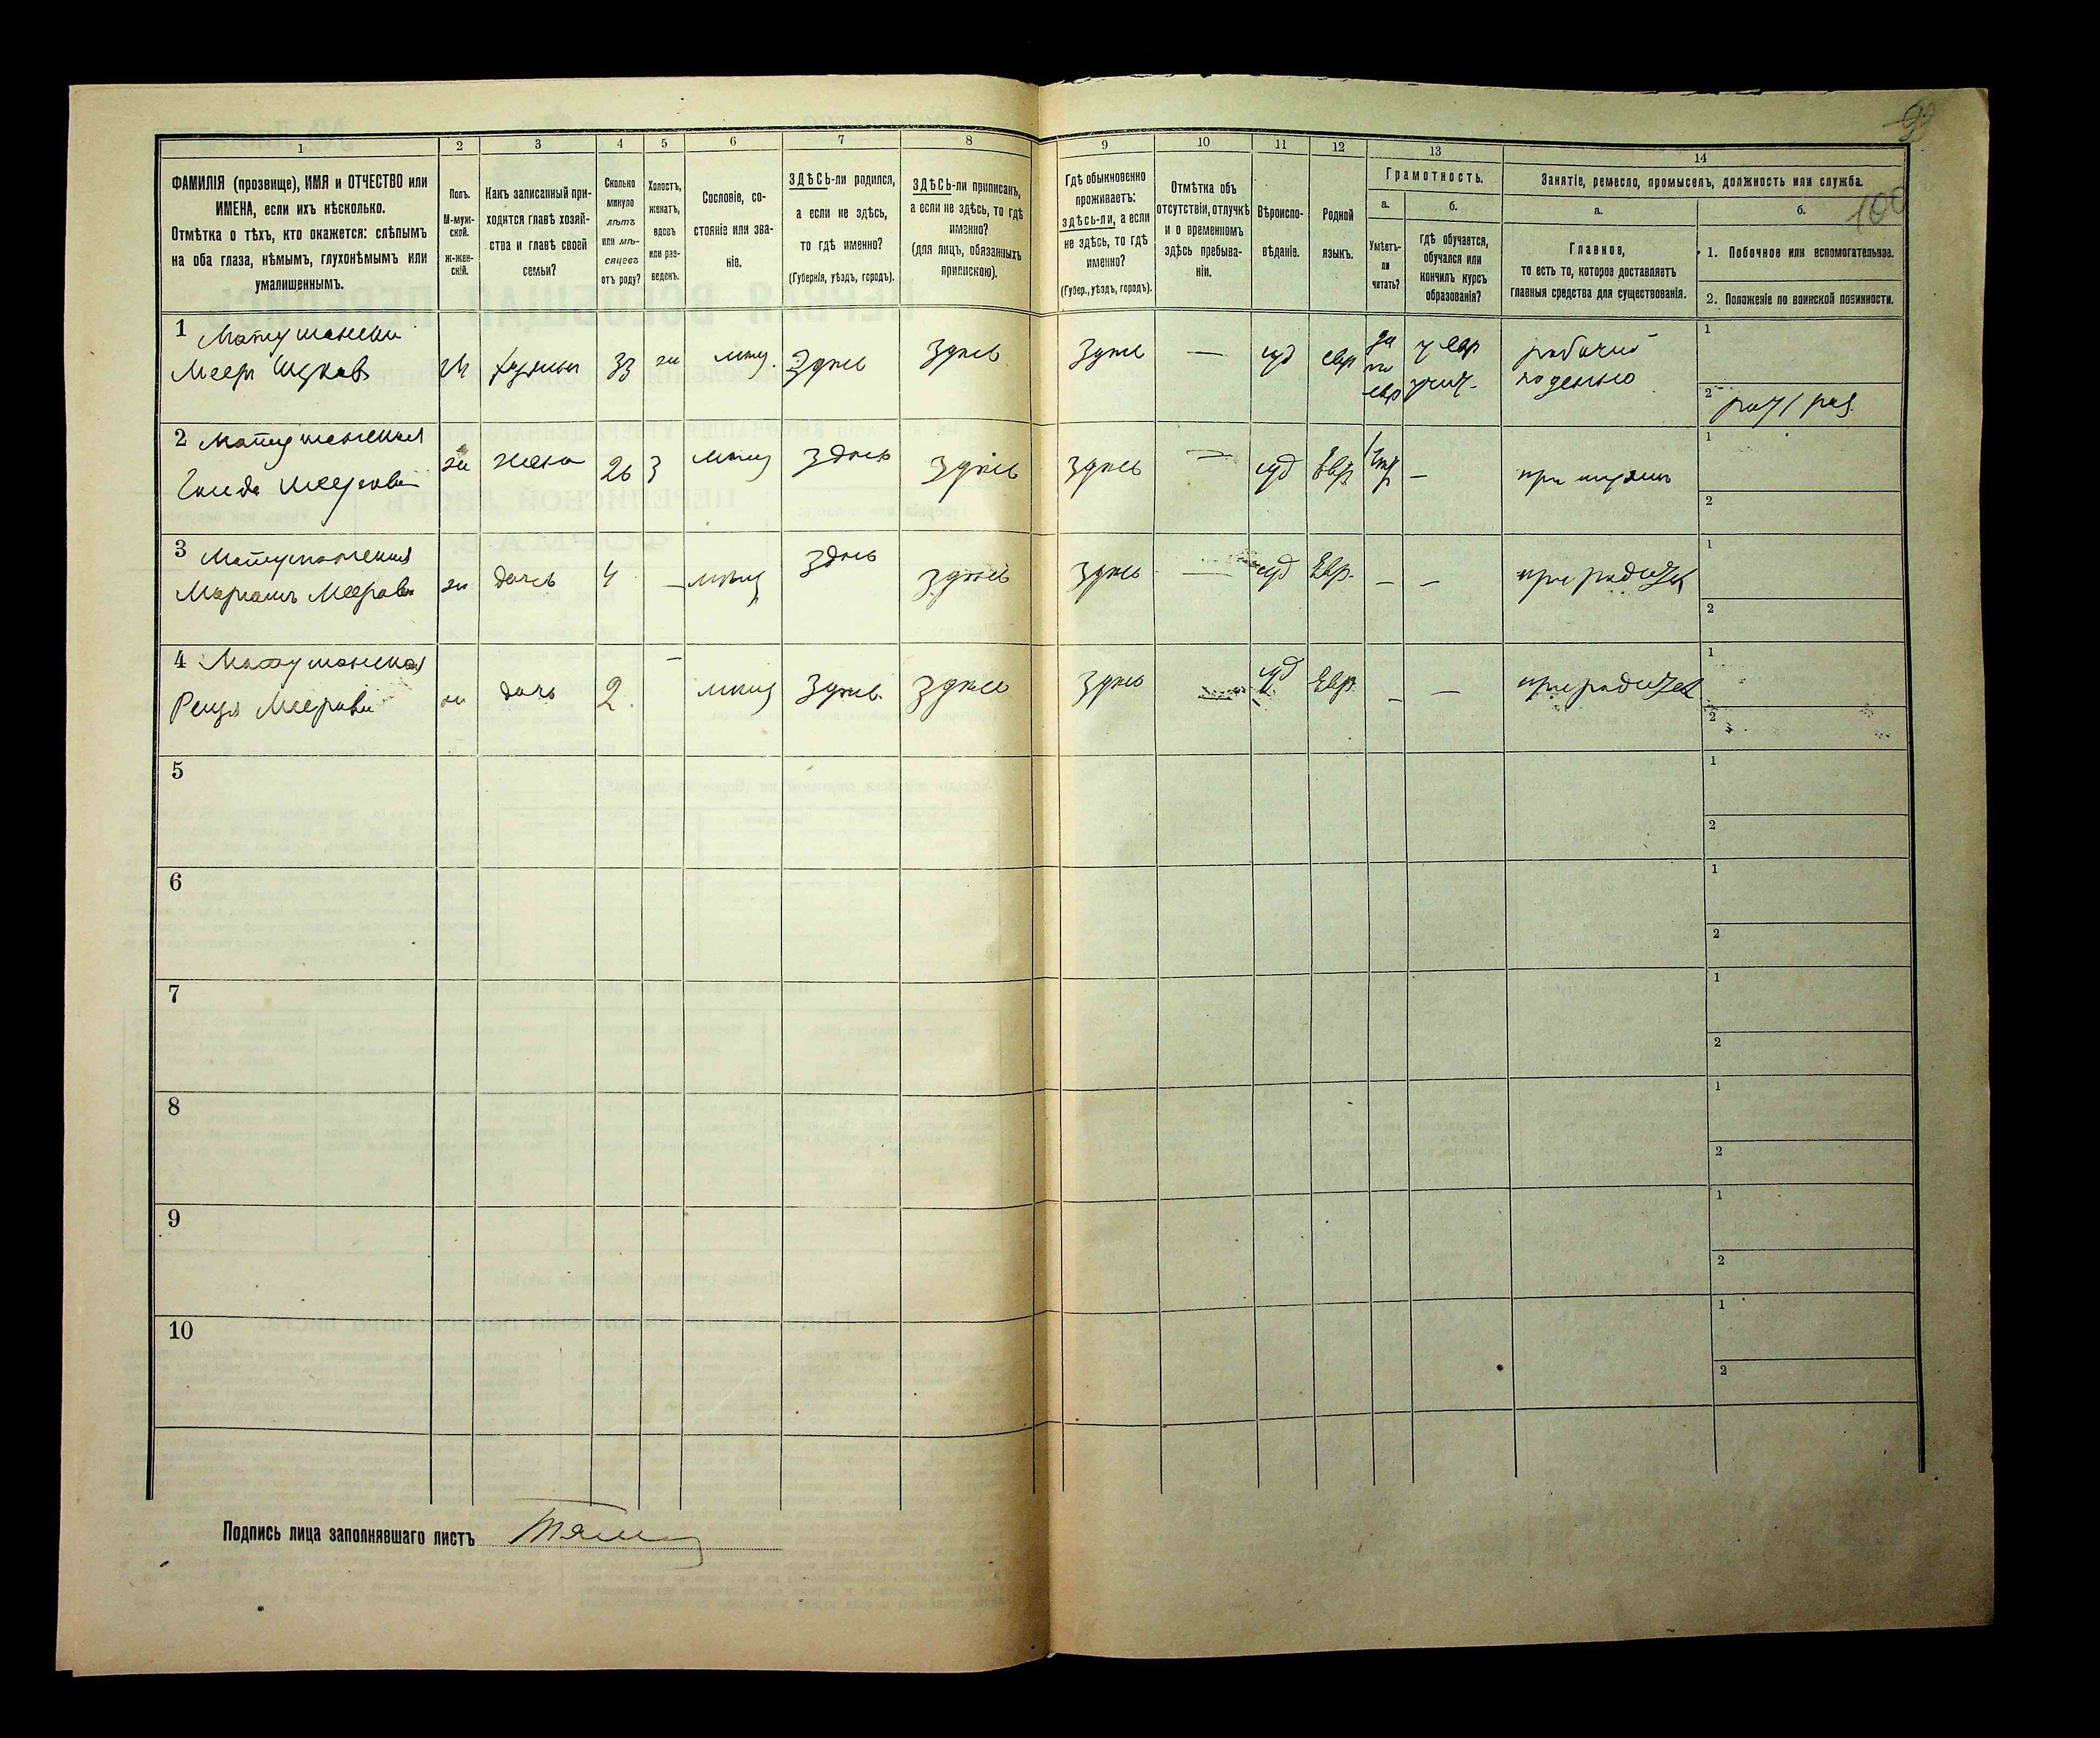 99
100
1
2
3
4
5
6
7
8
9
10
11
12
13
14
ФАМИЛІЯ (прозвище), ИМЯ и ОТЧЕСТВО или
ИМЕНА, если ихъ нѣсколько.
Отмѣтка о тѣхъ, кто окажется: слѣпымъ
на оба глаза, нѣмымъ, глухонѣмымъ или
умалишеннымъ.
Полъ.
М-муж-
ской.
Ж-жен-
скій.
Какъ записанный при-
ходится главѣ хозяй-
ства и главѣ своей
семьи?
Сколько
минуло
лѣтъ
или мѣ-
сяцевъ
отъ роду?
Холостъ,
женатъ,
вдовъ
или раз-
веденъ.
Сословіе, со-
стояніе или зва-
ніе.
ЗДѢСЬ-ли родился,
а если не здѣсь,
то гдѣ именно?
(Губернія, уѣздъ, городъ).
ЗДѢСЬ-ли приписанъ,
а если не здѣсь, то гдѣ
именно?
(для лицъ, обязанныхъ
припискою).
Гдѣ обыкновенно
проживаетъ:
здѣсь-ли, а если
не здѣсь, то гдѣ
именно?
(Губер., уѣздъ, городъ).
Отмѣтка объ
отсутствіи, отлучкѣ
и о временномъ
здѣсь пребыва-
ніи.
Вѣроиспо-
вѣданіе.
Родной
языкъ.
Грамотность.
а.
Умѣетъ-
ли
читать?
б.
гдѣ обучается,
обучался или
кончилъ курсъ
образованія?
Занятіе, ремесло, промыселъ, должность или служба.
а.
Главное,
то есть то, которое доставляетъ
главныя средства для существованія.
б.
1. Побочное или вспомогательное.
2. Положеніе по воинской повинности.
1
Меер
М
33
мѣщ.
здѣсь
здѣсь
здѣсь
—
іуд
евр
да
по
евр
у евр
учит.
рабочий
поденно
1
2
2
ж
жена
26
З
мѣщ
здѣсь
здѣсь
здѣсь
—
іуд
Евр
—
1
2
3
ж
дочь
4
—
мѣщ
здѣсь
здѣсь
здѣсь
—
іуд
Евр.
—
—
при родител
1
2
4
ж
дочь
2.
—
мѣщ
здѣсь
здѣсь
здѣсь
—
іуд
Евр.
—
—
при родител
1
2
5
1
2
6
1
2
7
1
2
8
1
2
9
1
2
10
1
2
Подпись лица заполнявшаго листъ